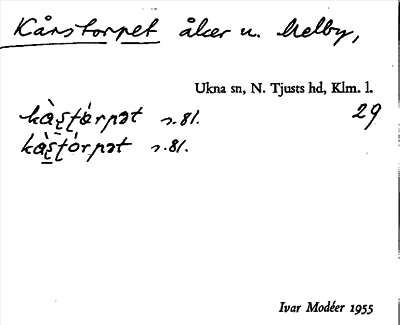 Kårstorpet åker u. Melby,
Ukna sn, N. Tjusts hd, Klm. l.
29
s. 81.
s. 81.
Ivar Modéer 1955